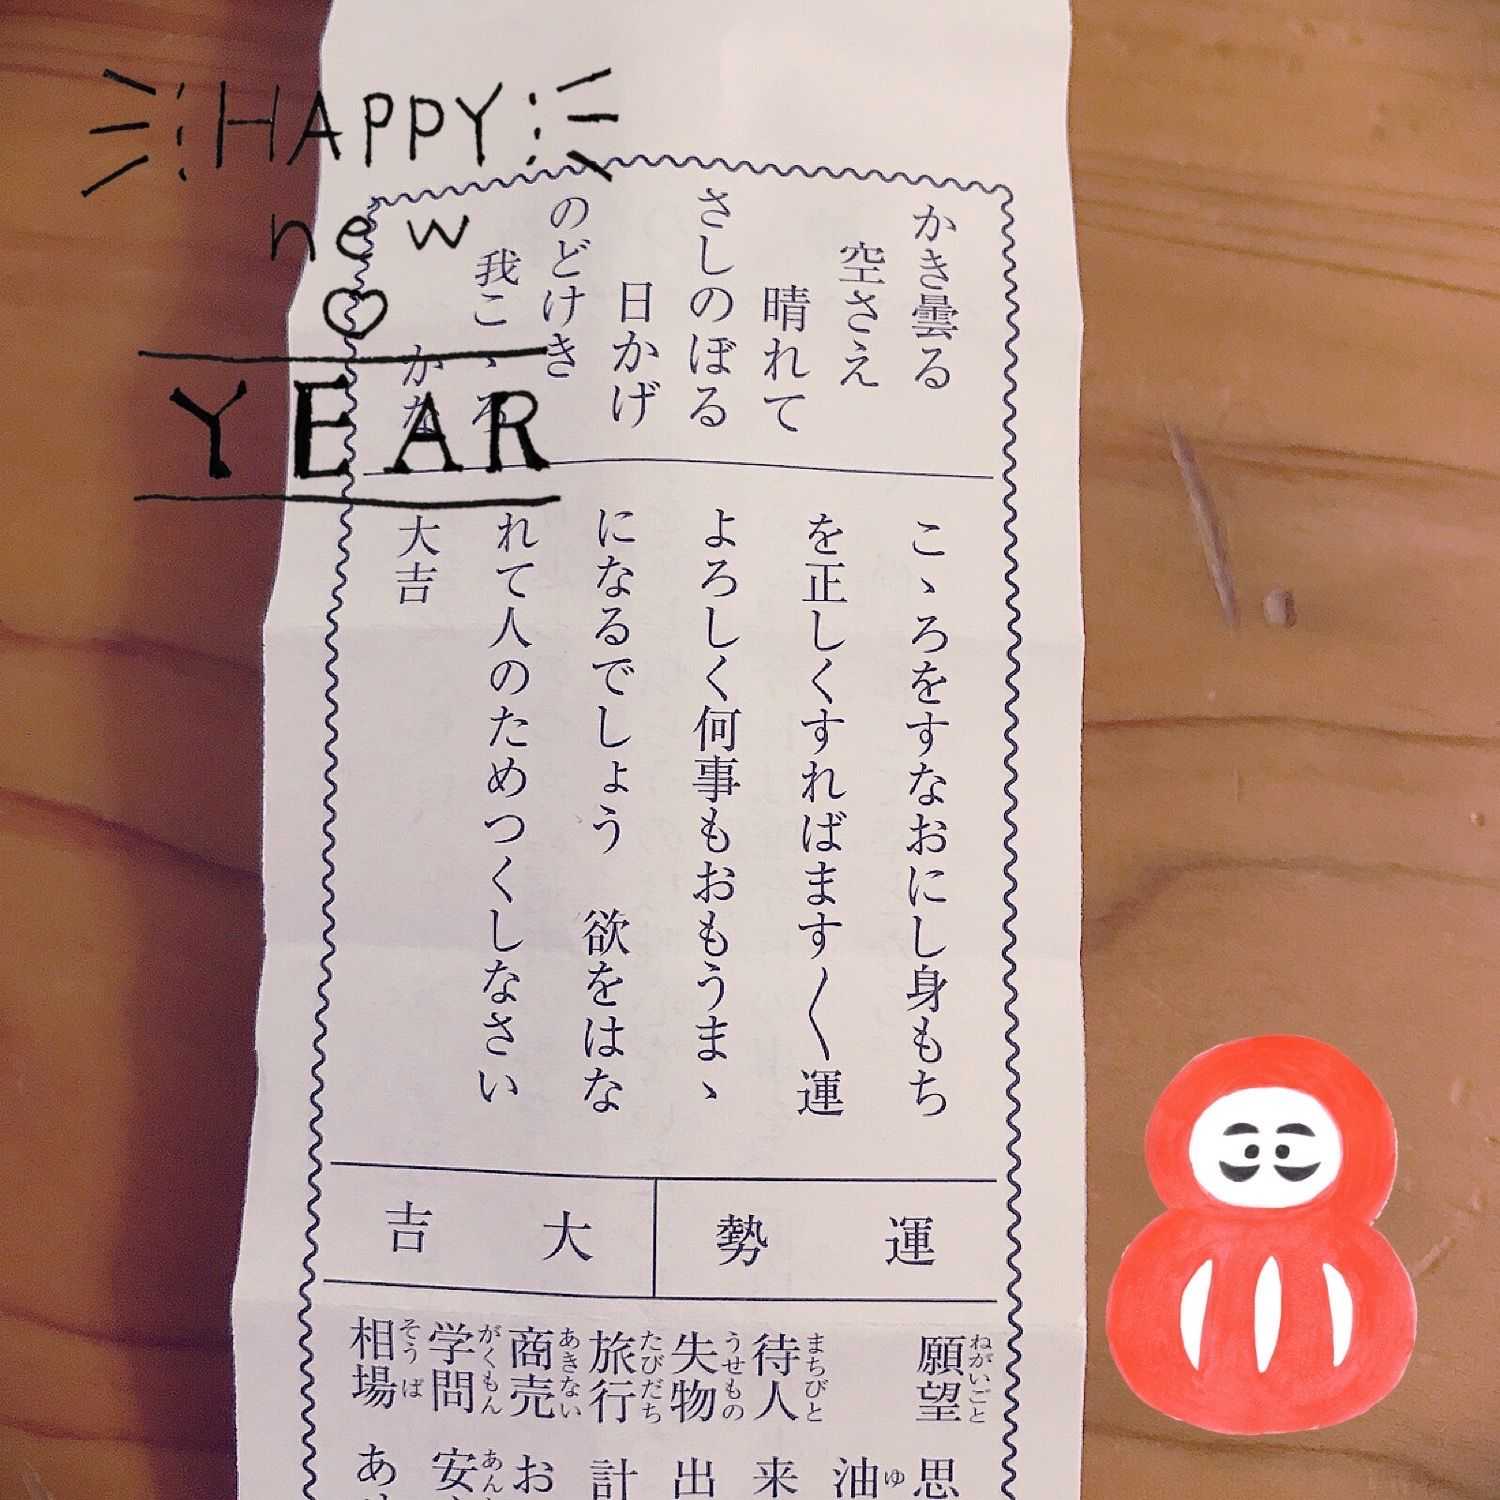 HAPPY
new
YEAR
かき曇る
空さえ
晴れて
さしのぼる
日かげ
のどけき
我こゝろ
かな
こゝろをすなおにし身もち
を正しくすればます〱運
よろしく何事もおもうまゝ
になるでしょう 欲をはな
れて人のためつくしなさい
大吉
運勢
大吉
願望 ねがいごと 思
油 ゆ
待人 まちびと 来
失物 うせもの 出
旅行 たびだち 計
商売 あきない お
学問 がくもん 安 あん
相場 そうば あ